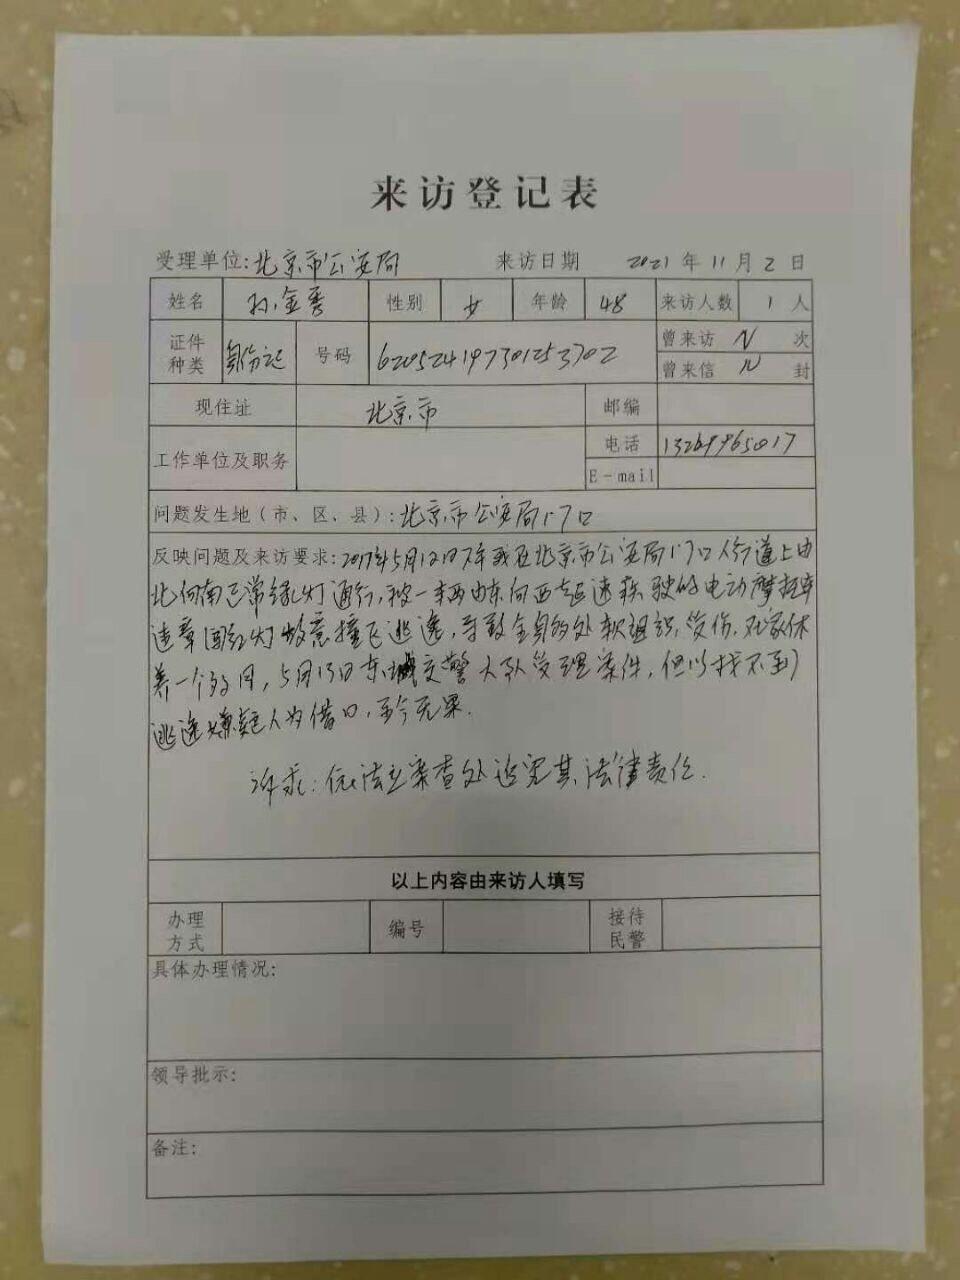 来访登记表
受理单位:北京市公安局 来访日期 2021年11月2日
姓名 孙金香 性别 女 年龄 48 来访人数 1人
证件种类 身份证 号码 620524197301253702 曾来访 N 次
曾来信 N 封
现住址 北京市 邮编
工作单位及职务 电话 13269965017
E-mail
问题发生地（市、区、县）:北京市公安局门口
反映问题及来访要求:2017年5月12日下午我在北京市公安局门口人行道上由
北向南正常绿灯通行,被一辆由东向西超速疾驶的电动摩托车
违章闯红灯故意撞飞逃逸,导致全身多处软组织受伤,在家休
养一个多月,5月13日东城交警大队受理案件,但以找不到
逃逸嫌疑人为借口,至今无果.
诉求:依法立案查处追究其法律责任.
以上内容由来访人填写
办理方式 编号 接待民警
具体办理情况:
领导批示:
备注: